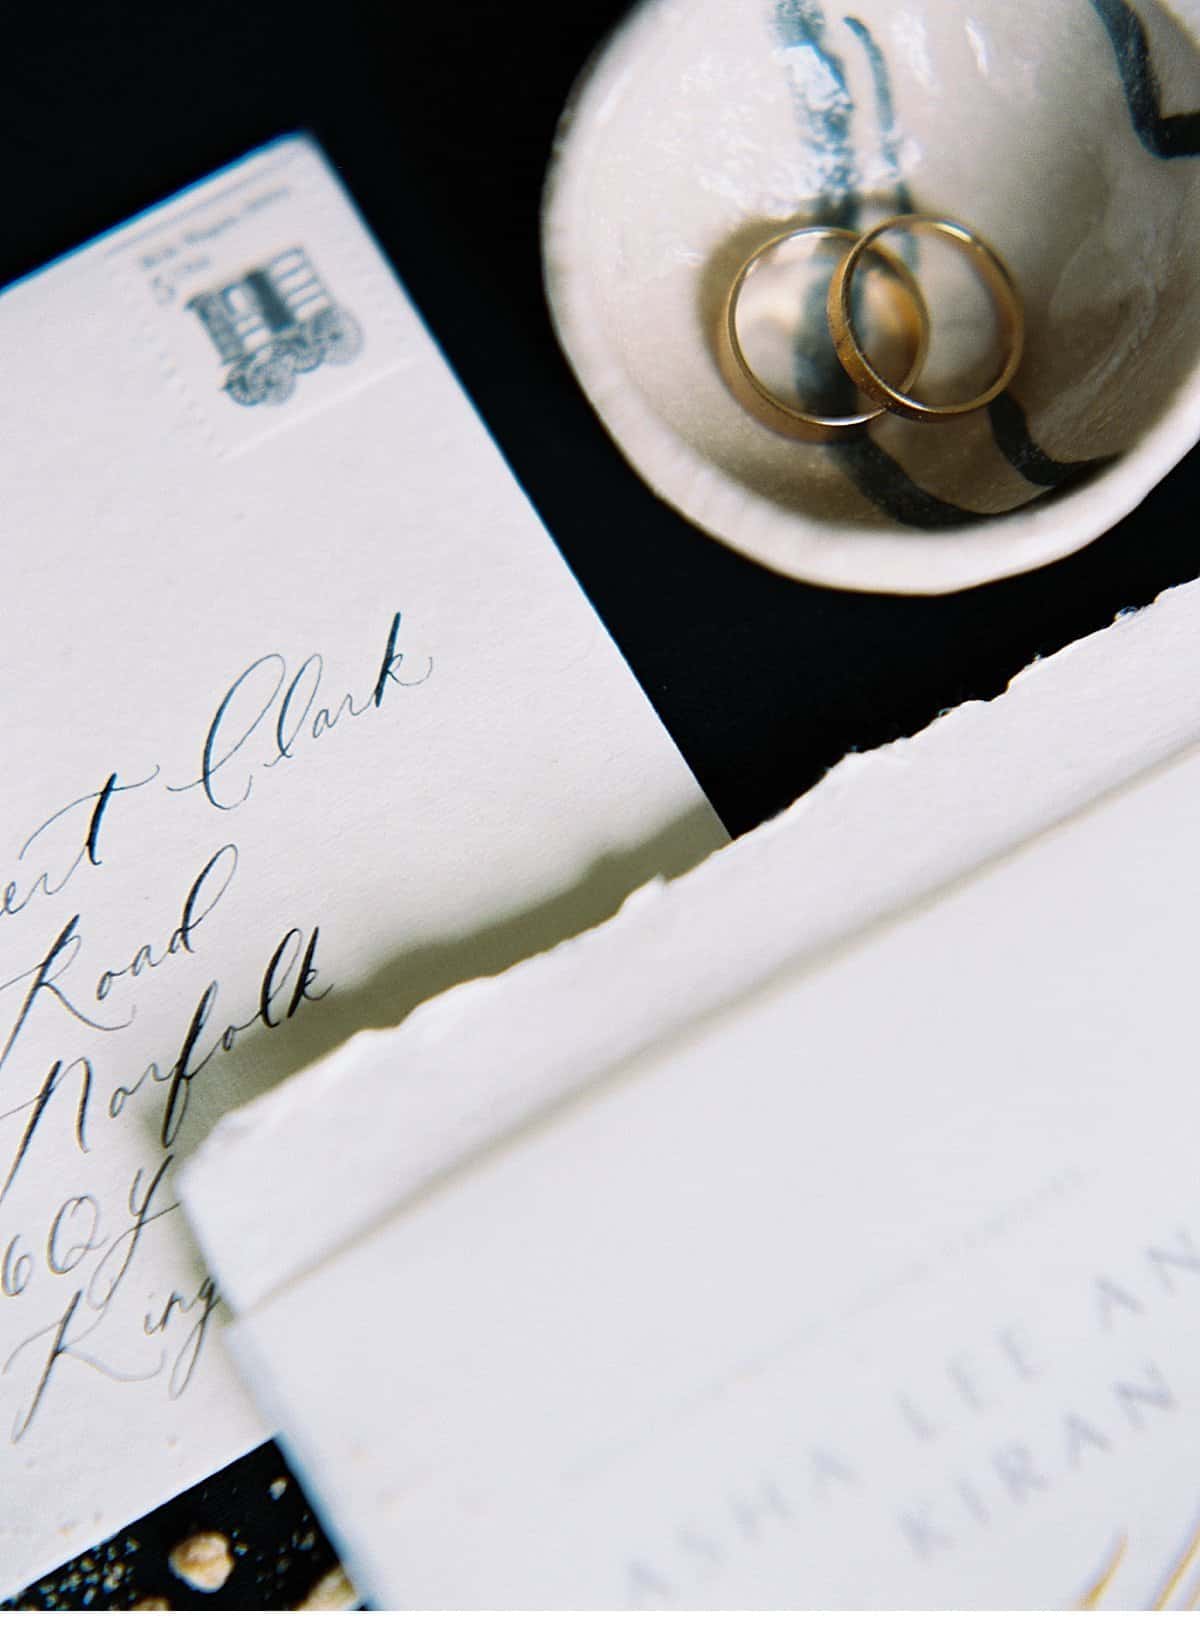 Clark
Road
Norfolk
6QY
King
ASHA LEE AN
KIRAN